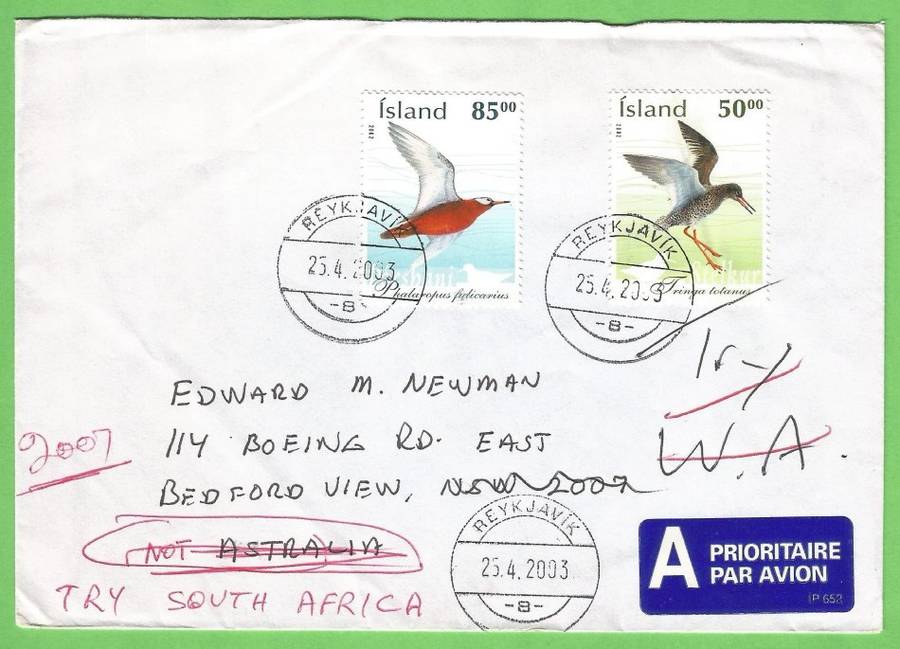 Ísland 85⁰⁰
2002
Phalaropus fulicarius
Ísland 50⁰⁰
2002
Tringa totanus
REYKJAVÍK
25.4.2003
-8-
REYKJAVÍK
25.4.2003
-8-
Try
W.A.
EDWARD M. NEWMAN
114 BOEING RD. EAST
BEDFORD VIEW, NSW 2007
2007
NOT ASTRALIA
TRY SOUTH AFRICA
REYKJAVÍK
25.4.2003
-8-
A PRIORITAIRE
PAR AVION